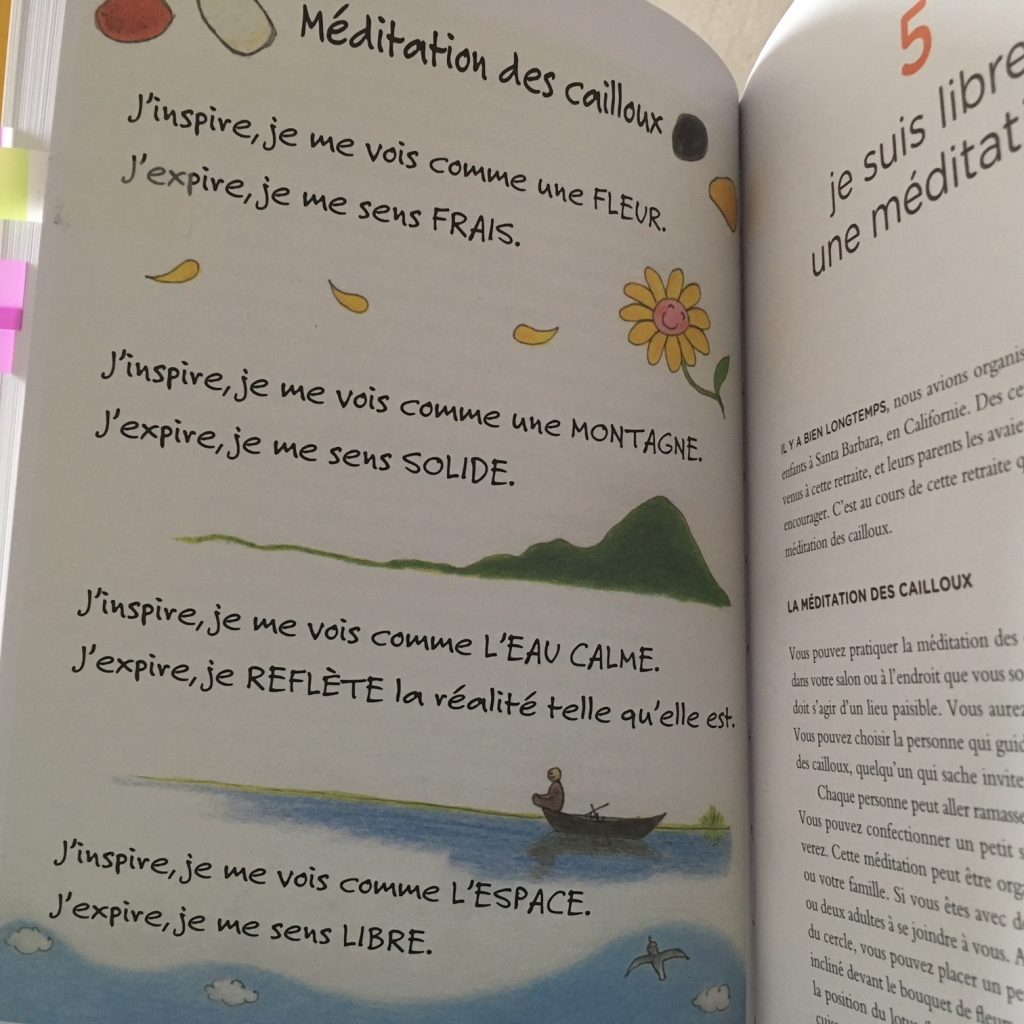 Méditation des cailloux
J'inspire, je me vois comme une FLEUR.
J'expire, je me sens FRAIS.
J'inspire, je me vois comme une MONTAGNE.
J'expire, je me sens SOLIDE.
J'inspire, je me vois comme L'EAU CALME.
J'expire, je REFLÈTE la réalité telle qu'elle est.
J'inspire, je me vois comme L'ESPACE.
J'expire, je me sens LIBRE.
5
je suis libre
une
IL Y A BIEN LONGTEMPS, nous avions
enfants à Santa Barbara, en Californie. Des
venus à cette retraite, et leurs parents les
encourager. C'est au cours de cette retraite
méditation des cailloux.
LA MÉDITATION DES CAILLOUX
Vous pouvez pratiquer la méditation des
dans votre salon ou à l'endroit que vous
doit s'agir d'un lieu paisible. Vous
Vous pouvez choisir la personne qui
des cailloux, quelqu'un qui sache
Chaque personne peut aller
Vous pouvez confectionner un petit
verez. Cette méditation peut être
ou votre famille. Si vous êtes avec
ou deux adultes à se joindre à vous.
du cercle, vous pouvez placer un
incliné devant le bouquet de
la position du